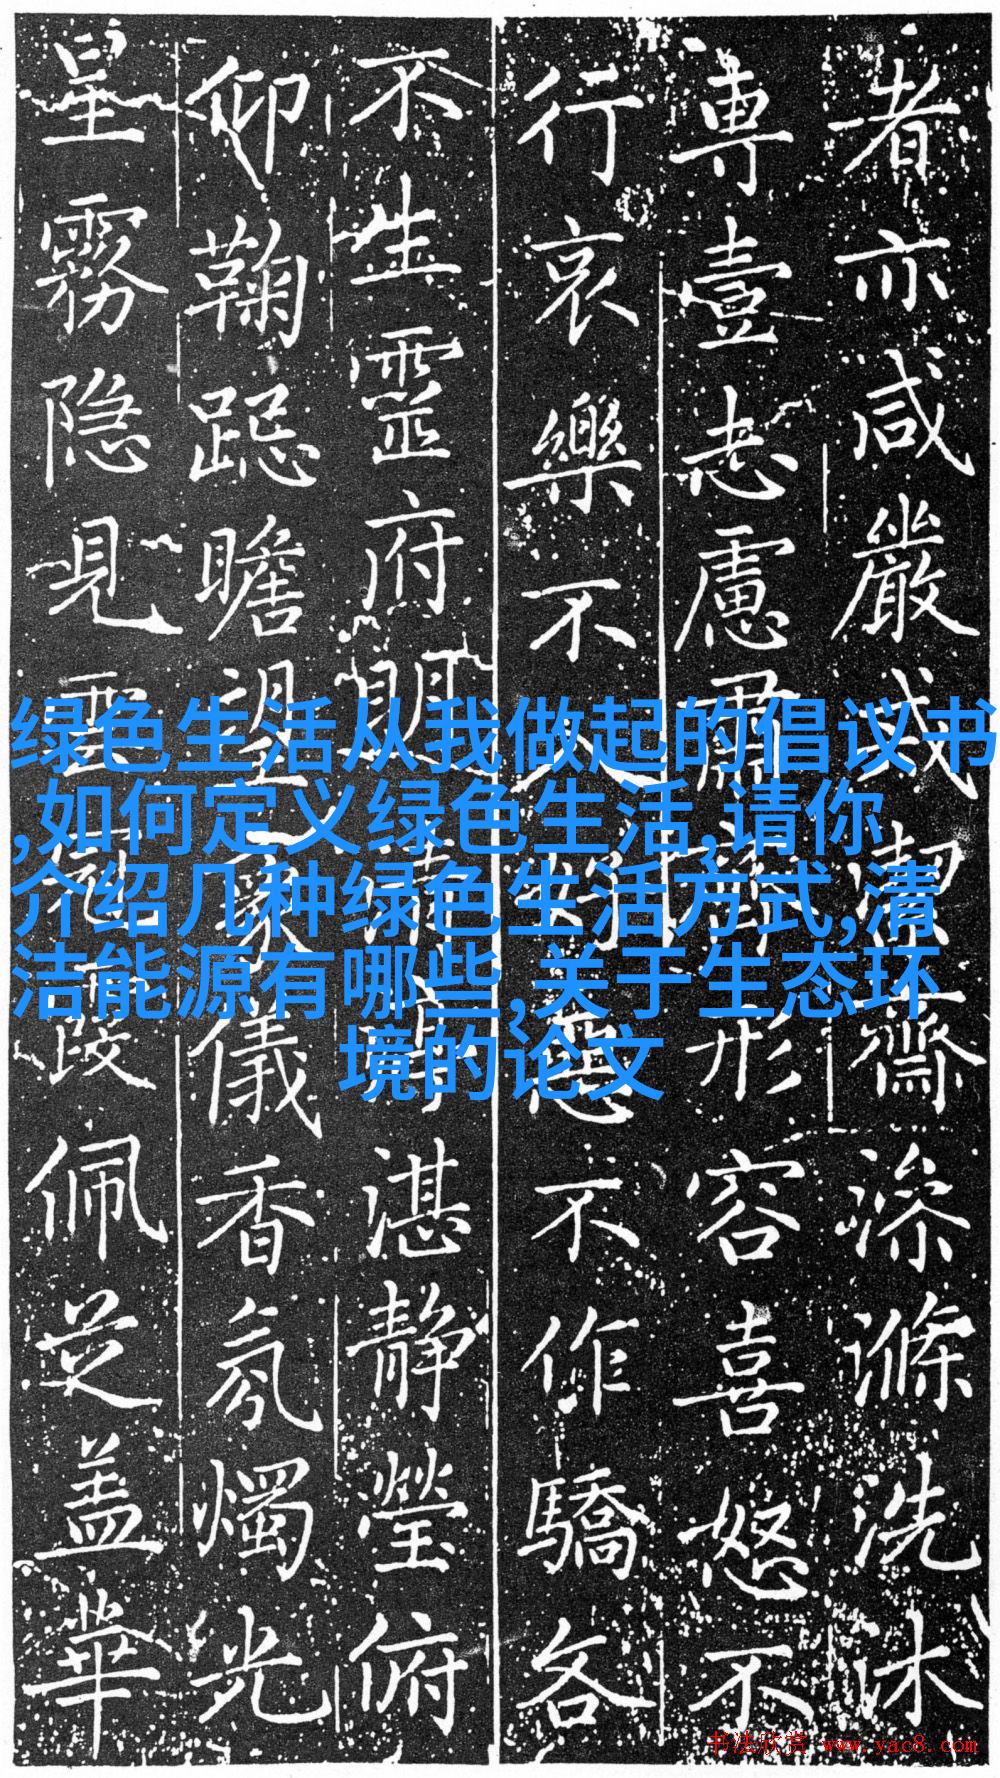 者亦咸嚴戒潔齋澡滌洗沐
專壹志慮肅齊形容喜怒不
行哀樂不入不作驕各
不生靈府湛靜瑩俯
仰鞠跽瞻望象儀香氛燭光
星霧隐見雲冠霞佩芝盖華
绿色生活从我做起的倡议书
,如何定义绿色生活,请你
介绍几种绿色生活方式,清
洁能源有哪些,关于生态环
境的论文
书法欣赏 www.yac8.com